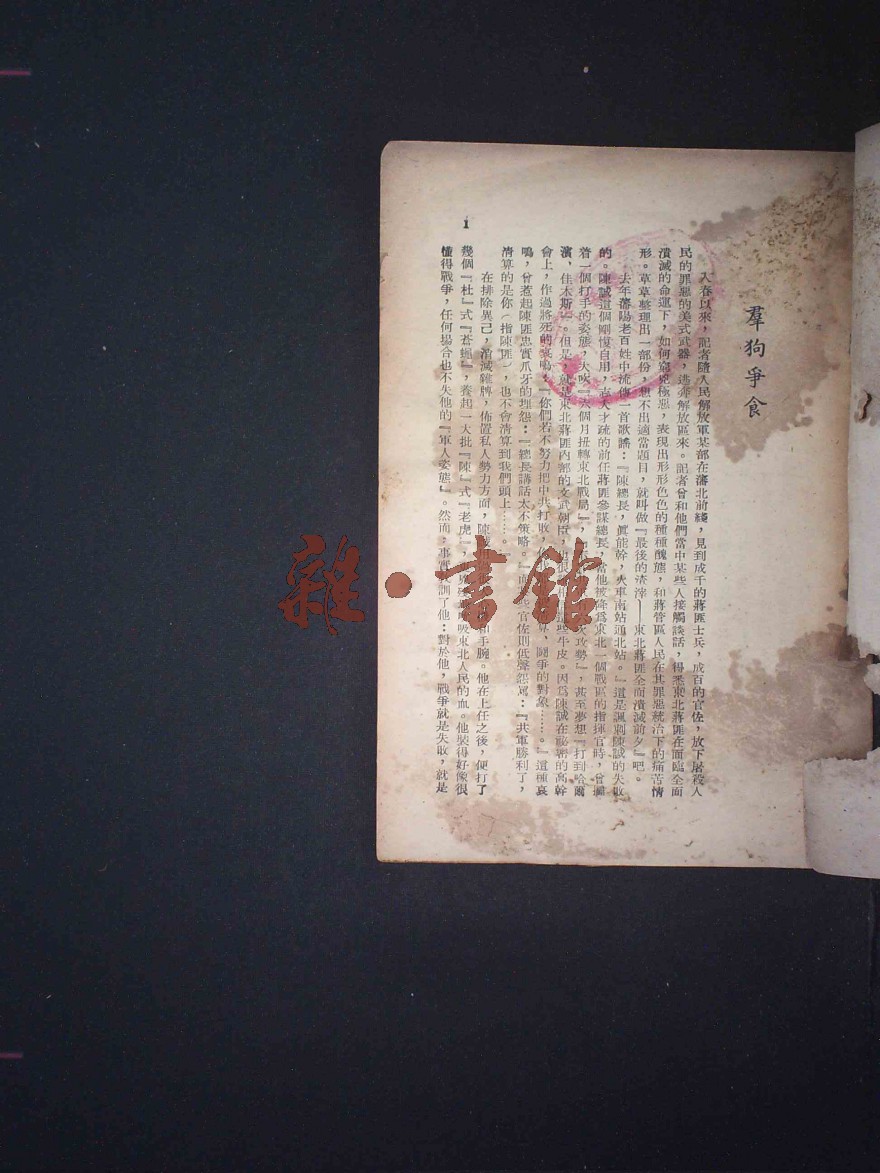 羣狗爭食
入春以來，記者隨人民解放軍某部在瀋北前綫，見到成千的蔣匪士兵，成百的官佐，放下屠殺人
民的罪惡的美式武器，逃奔解放區來。記者曾和他們當中某些人接觸談話，得悉東北蔣匪在面臨全面
潰滅的命運下，如何窮兇極惡，表現出形形色色的種種醜態，和蔣管區人民在其罪惡統治下的痛苦情
形。草草整理出一部份，想不出適當題目，就叫做『最後的渣滓——東北蔣匪全面潰滅前夕』吧。
去年瀋陽老百姓中流傳一首歌謠：『陳總長，眞能幹，火車南站通北站。』這是諷刺陳誠的失敗
的。陳誠這個剛愎自用，志大才疏的前任蔣匪參謀總長，當他被降爲東北一個戰區的指揮官時，曾擺
着一個打手的姿態，大吹『六個月扭轉東北戰局』，次攻勢』，甚至夢想『打到哈爾
濱，佳木斯』。但是，就是東北蔣匪內部的文武朝臣，也很些牛皮。因爲陳誠在秘密的高幹
會上，作過將死的哀鳴：『你們若不努力把中共打敗，算，鬪爭的對象……。』這種哀
鳴，曾惹起陳匪忠實爪牙的埋怨：『總長講話太不策略。』些官佐則低聲怨罵：『共軍勝利了，
清算的是你（指陳匪），也不會清算到我們頭上……。』
在排除異己，消滅雜牌，佈置私人勢力方面，陳和手腕。他在上任之後，便打了
幾個『杜』式『蒼蠅』，養起一大批『陳』式『老虎』，吸東北人民的血。他裝得好像很
懂得戰爭，任何場合也不失他的『軍人姿態』。然而，事實敎訓了他：對於他，戰爭就是失敗，就是
1
雜·書館